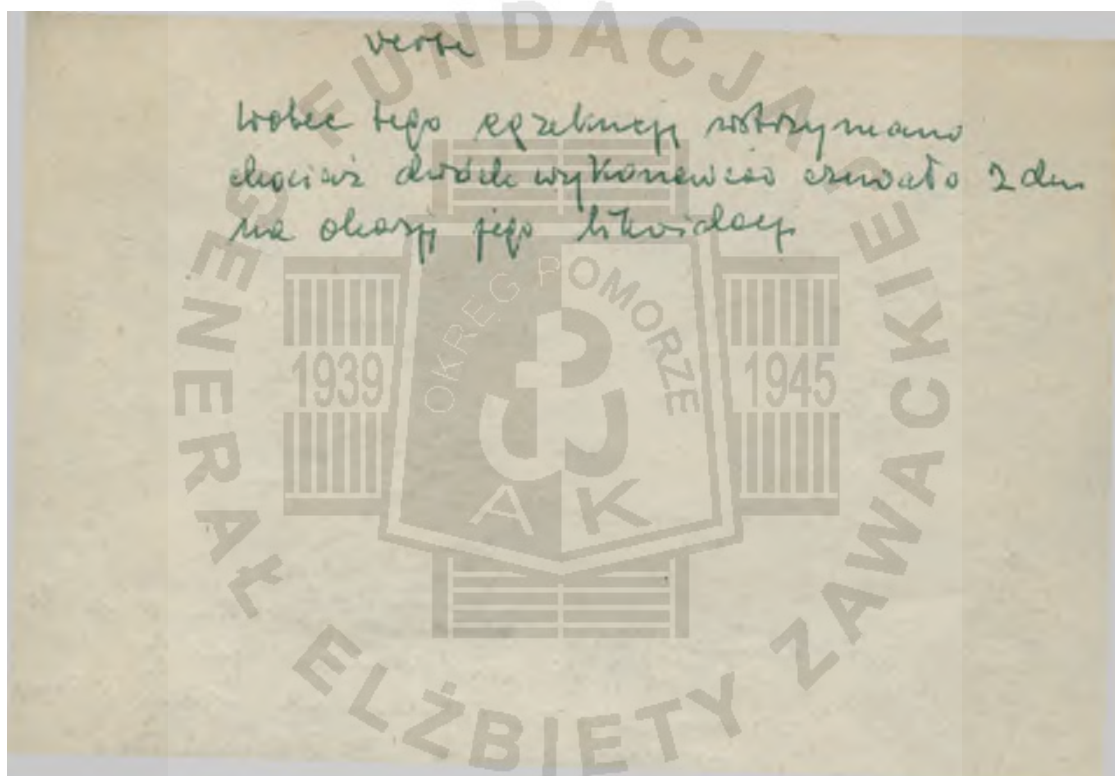 verte
wobec tego egzekucję wstrzymano
chociaż dwóch wykonawców czuwało 2 dni
na okazję jego likwidacji
FUNDACJA GENERAŁ ELŻBIETY ZAWACKIEJ
OKRĘG POMORZE
1939 1945
AK